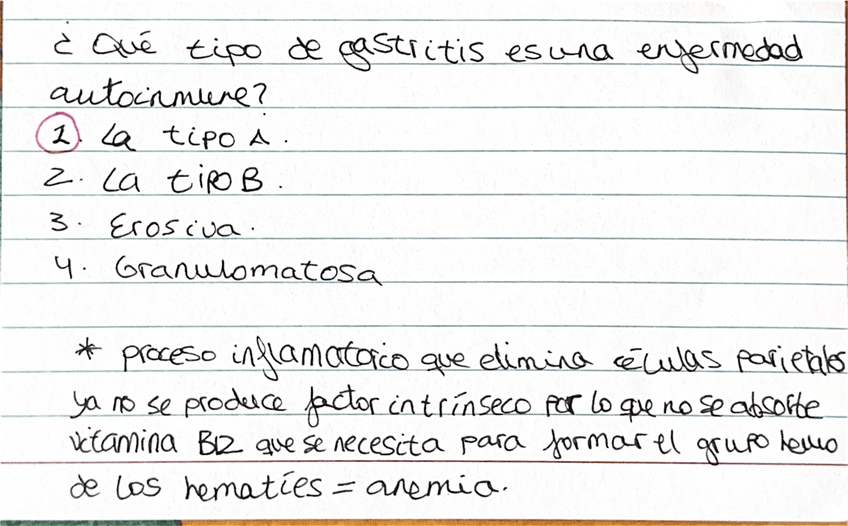 ¿Qué tipo de gastritis es una enfermedad
autoinmune?
1. La tipo A.
2. La tipo B.
3. Erosiva.
4. Granulomatosa
* proceso inflamatorio que elimina células parietales
ya no se produce factor intrínseco por lo que no se absorbe
vitamina B12 que se necesita para formar el grupo hemo
de los hematíes = anemia.